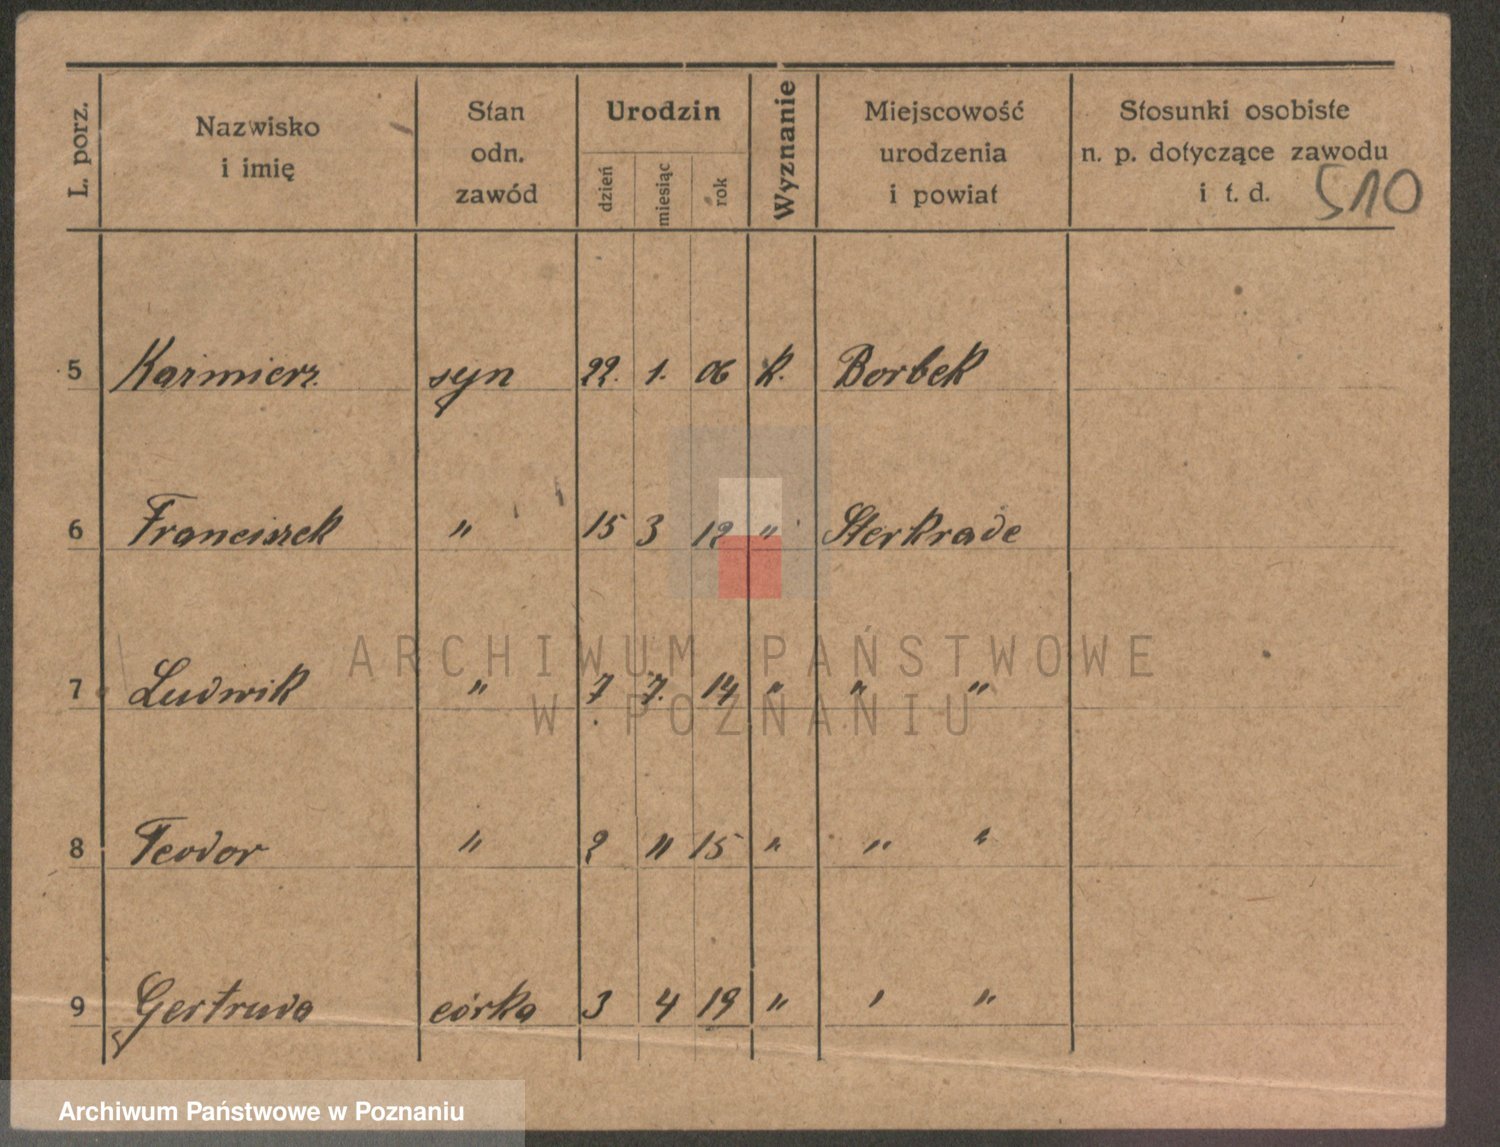 L. porz.
Nazwisko
i imię
Stan
odn.
zawód
Urodzin
dzień
miesiąc
rok
Wyznanie
Miejscowość
urodzenia
i powiat
Stosunki osobiste
n. p. dotyczące zawodu
i t. d.
510
5 Kazimierz syn 22. 1. 06 k. Borbek
6 Franciszek " 15 3 12 " Sterkrade
7 Ludwik " 7 7. 14 " " "
8 Teodor " 2 11 15 " " "
9 Gertruda córka 3 4 19 " " "
ARCHIWUM PAŃSTWOWE
W POZNANIU
Archiwum Państwowe w Poznaniu